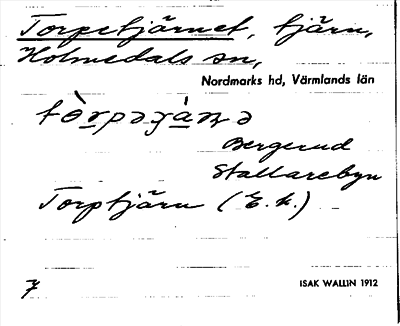 Torpetjärnet, tjärn,
Holmedals sn,
Nordmarks hd, Värmlands län
Bergerud
Stallarebyn
Torptjärn (E.k.)
7 ISAK WALLIN 1912